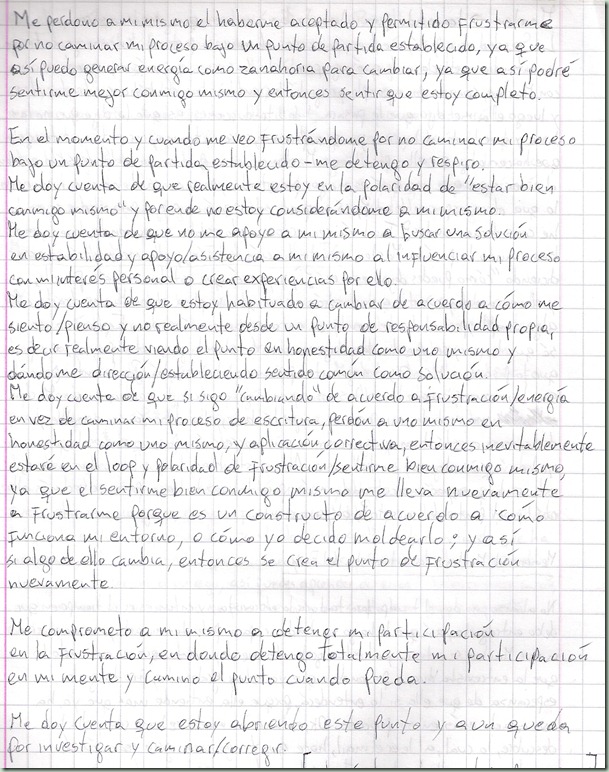 Me perdono a mi mismo el haberme aceptado y permitido frustrarme
por no caminar mi proceso bajo un punto de partida establecido, ya que
así puedo generar energía como zanahoria para cambiar, ya que así podré
sentirme mejor conmigo mismo y entonces sentir que estoy completo.
En el momento y cuando me veo frustrándome por no caminar mi proceso
bajo un punto de partida establecido - me detengo y respiro.
Me doy cuenta de que realmente estoy en la polaridad de "estar bien
conmigo mismo" y por ende no estoy considerándome a mi mismo.
Me doy cuenta de que no me apoyo a mi mismo a buscar una solución
en estabilidad y apoyo/asistencia a mi mismo al influenciar mi proceso
con mi interés personal o crear experiencias por ello.
Me doy cuenta de que estoy habituado a cambiar de acuerdo a cómo me
siento/pienso y no realmente desde un punto de responsabilidad propia,
es decir realmente viendo el punto en honestidad como uno mismo y
dándome dirección/estableciendo sentido común como solución.
Me doy cuenta de que si sigo "cambiando" de acuerdo a frustración/energía
en vez de caminar mi proceso de escritura, perdón a uno mismo en
honestidad como uno mismo, y aplicación correctiva, entonces inevitablemente
estaré en el loop y polaridad de frustración/sentirme bien conmigo mismo,
ya que el sentirme bien conmigo mismo me lleva nuevamente
a frustrarme porque es un constructo de acuerdo a cómo
funciona mi entorno, o cómo yo decido moldearlo; y así
si algo de ello cambia, entonces se crea el punto de frustración
nuevamente.
Me comprometo a mi mismo a detener mi participación
en la frustración, en donde detengo totalmente mi participación
en mi mente y camino el punto cuando pueda.
Me doy cuenta que estoy abriendo este punto y aun queda
por investigar y caminar/corregir.